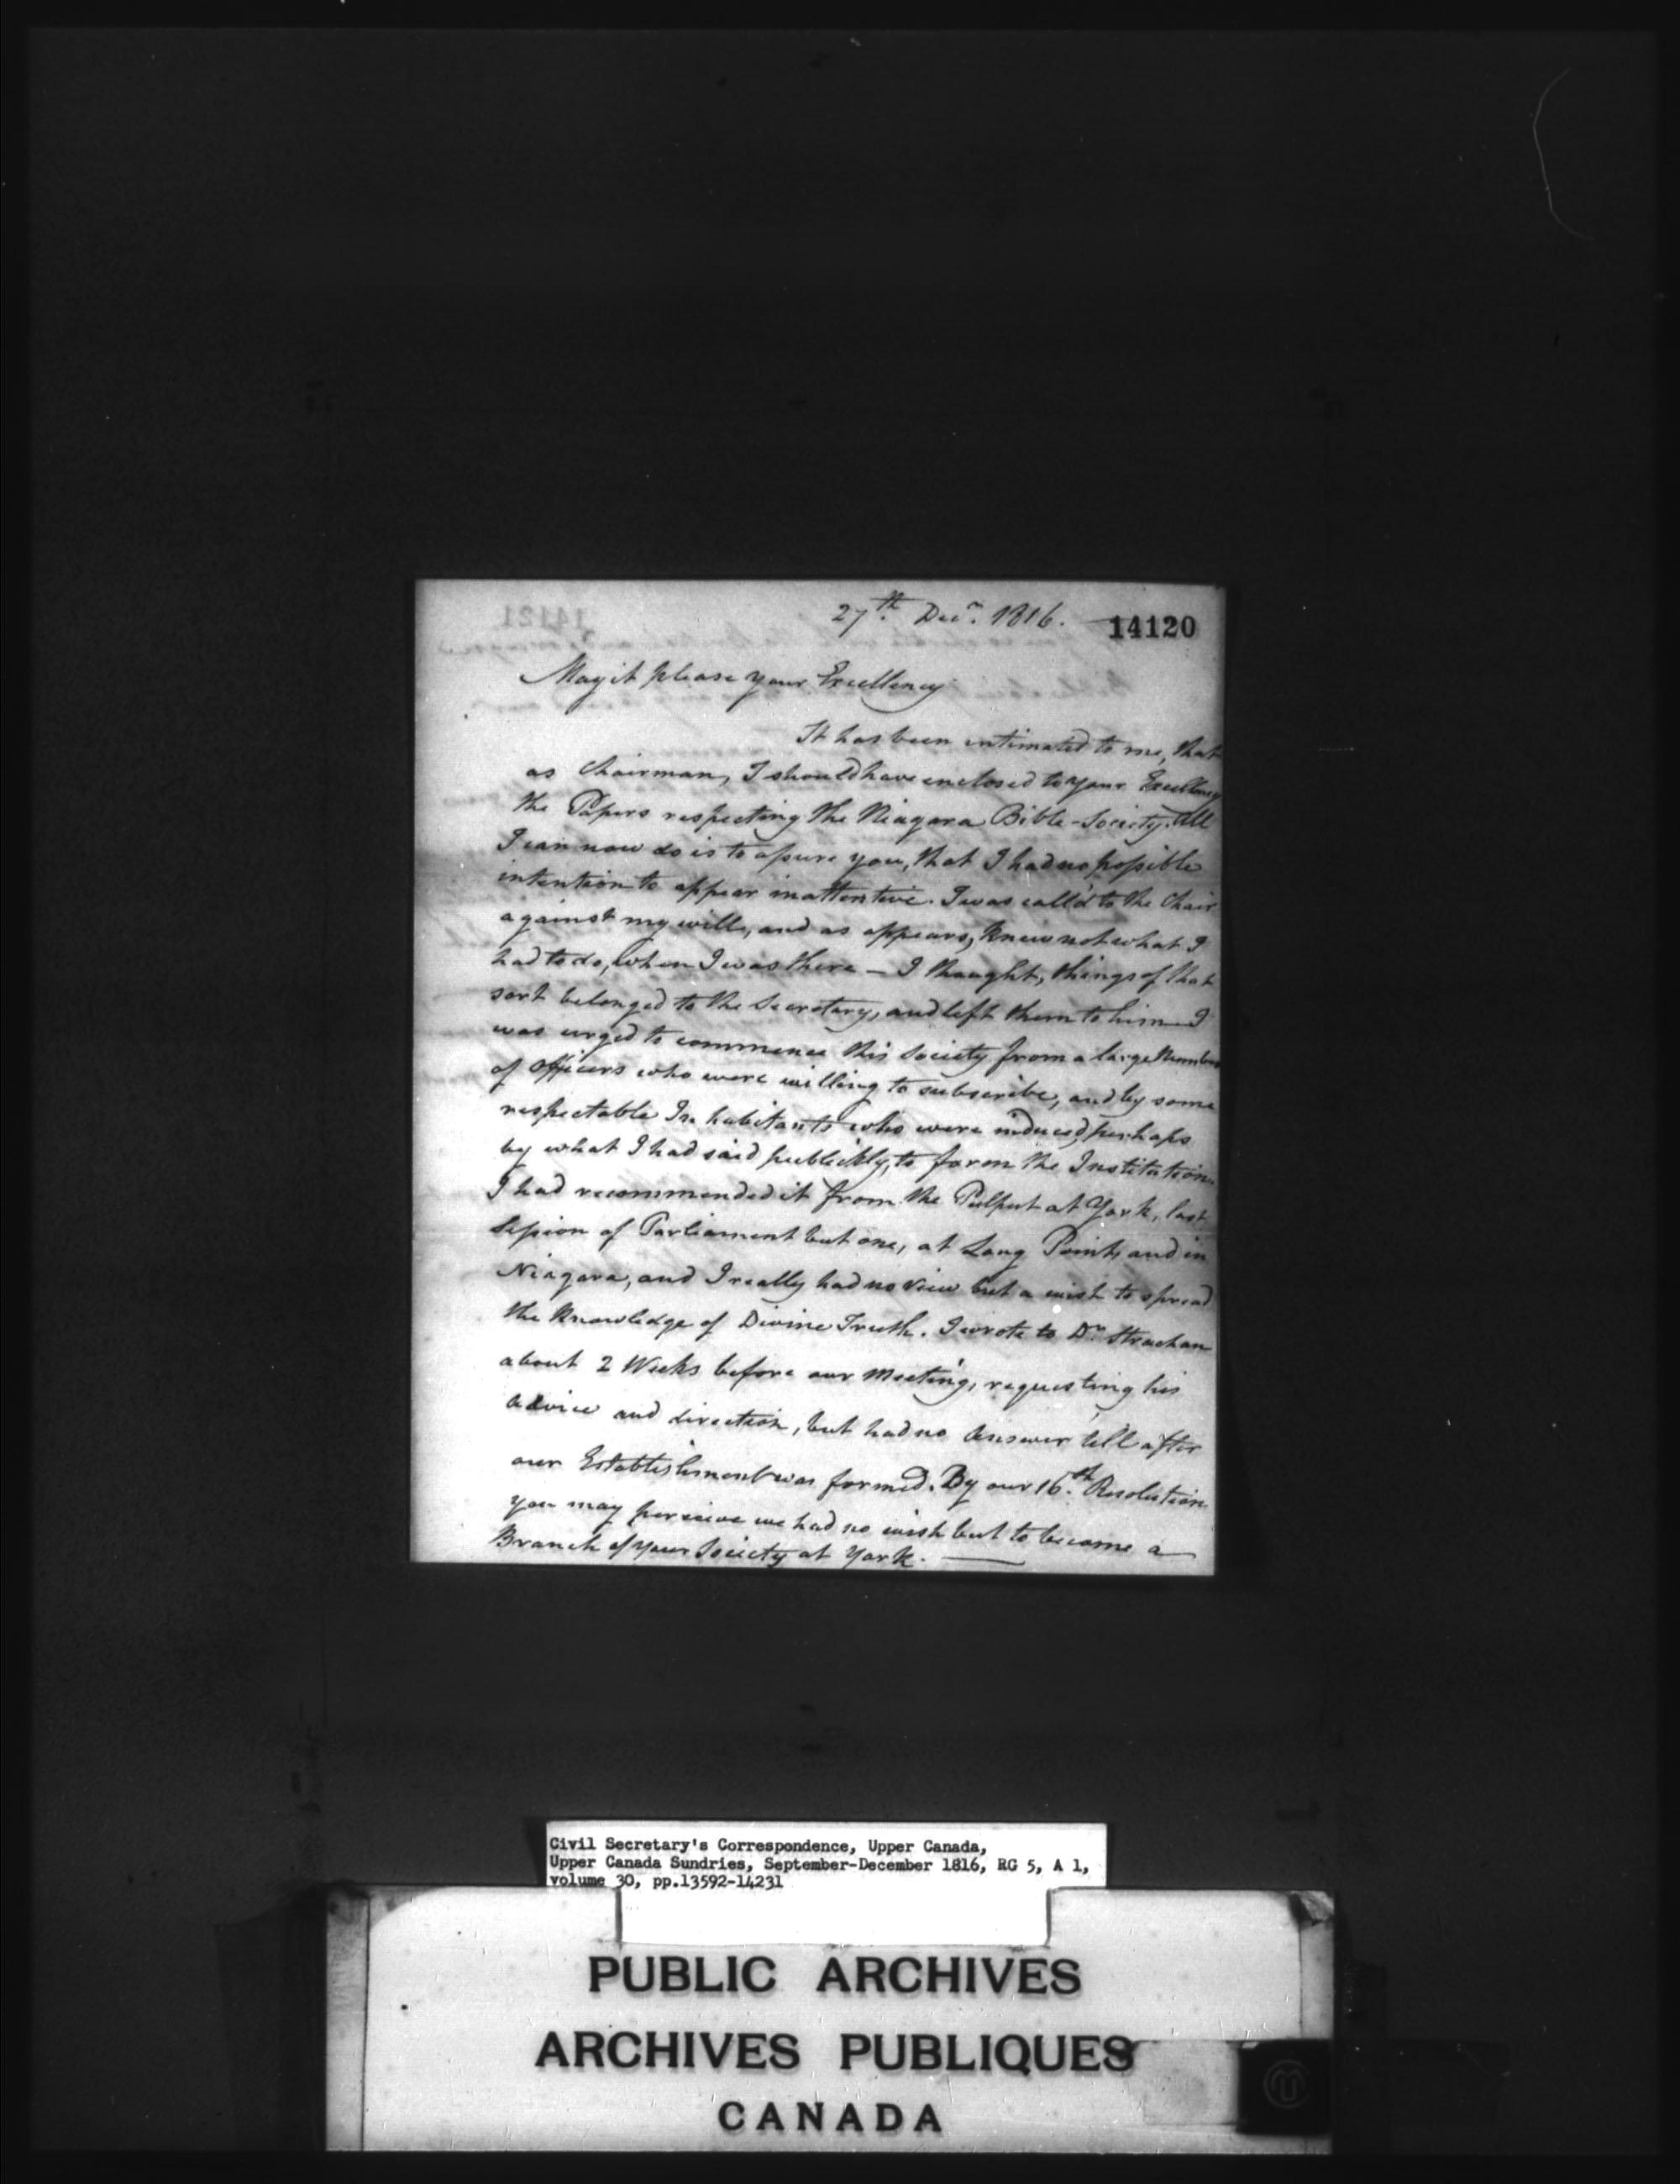 27th. Decr. 1816. 14120
May it please your Excellency
It has been intimated to me, that
as Chairman, I should have enclosed to your Excellency
the Papers respecting the Niagara Bible-Society. All
I can now do is to assure you, that I had no possible
intention to appear inattentive. I was call'd to the Chair
against my will, and as appears, knew not what I
had to do, when I was there — I thought, things of that
sort belonged to the Secretary, and left them to him — I
was urged to commence this Society from a large Number
of Officers who were willing to subscribe, and by some
respectable Inhabitants who were induced, perhaps
by what I had said publickly, to form the Institution.
I had recommended it from the Pulpit at York, last
Session of Parliament but one, at Long Point, and in
Niagara, and I really had no view but a wish to spread
the Knowledge of Divine Truth. I wrote to Dr. Strachan
about 2 Weeks before our Meeting, requesting his
advice and direction, but had no Answer till after
our Establishment was formed. By our 16th. Resolution
you may perceive we had no wish but to become a
Branch of your Society at York. —
Civil Secretary's Correspondence, Upper Canada,
Upper Canada Sundries, September-December 1816, RG 5, A 1,
volume 30, pp.13592-14231
PUBLIC ARCHIVES
ARCHIVES PUBLIQUES
CANADA